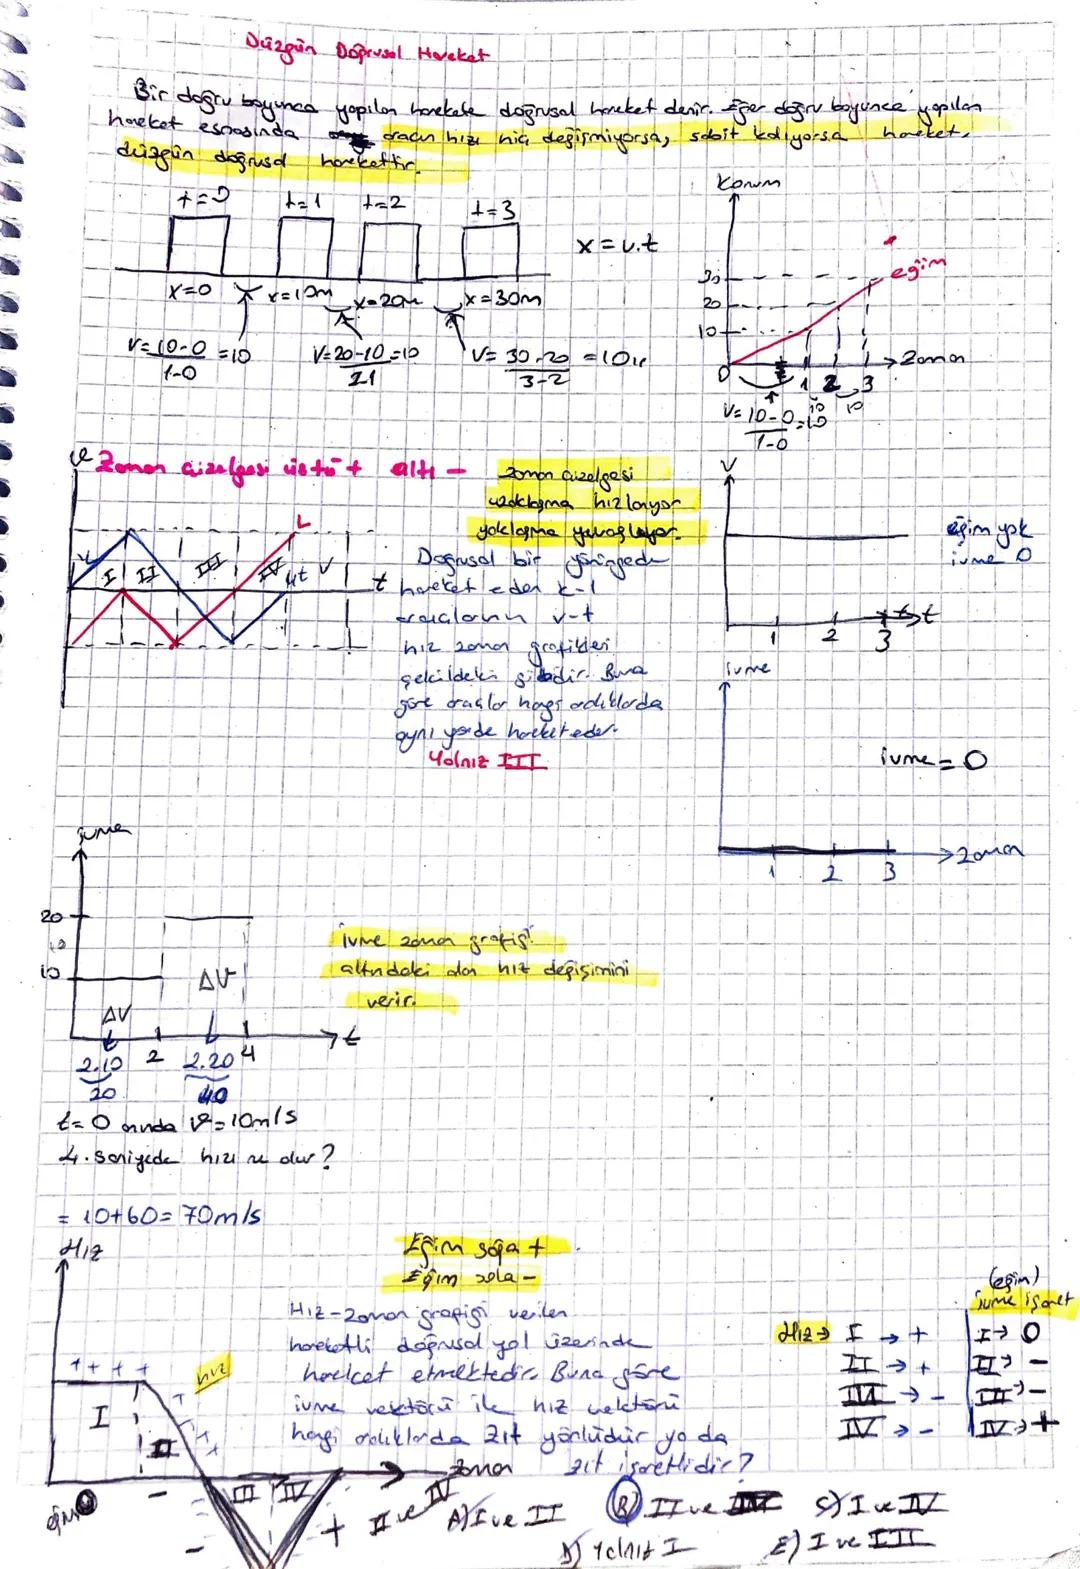 Düzgün Doğrusal Hareket
Bir doğru boyunca yapılan harekete doğrusal hareket denir. Eğer doğru boyunca yapılan
hareket esnasında aracın hızı hiç değişmiyorsa, sabit kalıyorsa hareket,
düzgün doğrusal harekettir.
t=0 t=1 t=2 t=3
x=v.t
x=0 x=10m x=20m x=30m
V=10-0/1-0=10 V=20-10/2-1=10 V=30-20/3-2=10
Konum
30
20
10
eğim
0 1 2 3 Zaman
10 10
V=10-0/1-0=10
Zaman çizelgesi üstü + altı -
zaman çizelgesi
uzaklaşma hızlanıyor
yaklaşma yavaşlıyor.
L
I II III IV
t
Doğrusal bir yörüngede
hareket eden K-L
araçlarının v-t
hız zaman grafikleri
şekildeki gibidir. Buna
göre araçlar hangi aralıklarda
aynı yönde hareket eder.
Yalnız III
V
eğim yok
ivme 0
1 2 3 t
ivme
ivme=0
1 2 3 Zaman
ivme
20
10
ΔV
ΔV
2 4 t
2.10 2.20
20 40
ivme zaman grafiği
altındaki alan hız değişimini
verir.
t=0 anında v=10m/s
4. saniyede hızı ne olur?
=10+60=70m/s
Hız
Eğim sağa +
Eğim sola -
Hız-Zaman grafiği verilen
hareketli doğrusal yol üzerinde
hareket etmektedir. Buna göre
ivme vektörü ile hız vektörü
hangi aralıklarda zıt yönlüdür ya da
zıt işaretlidir?
+ + + +
hız
I II III IV
zaman
- - +
II ve IV
Hız→ I → +
II → +
III → -
IV → -
(eğim)
ivme işaret
I→ 0
II→ -
III→ -
IV→ +
A) I ve II B) II ve IV C) I ve IV
D) Yalnız I E) I ve III